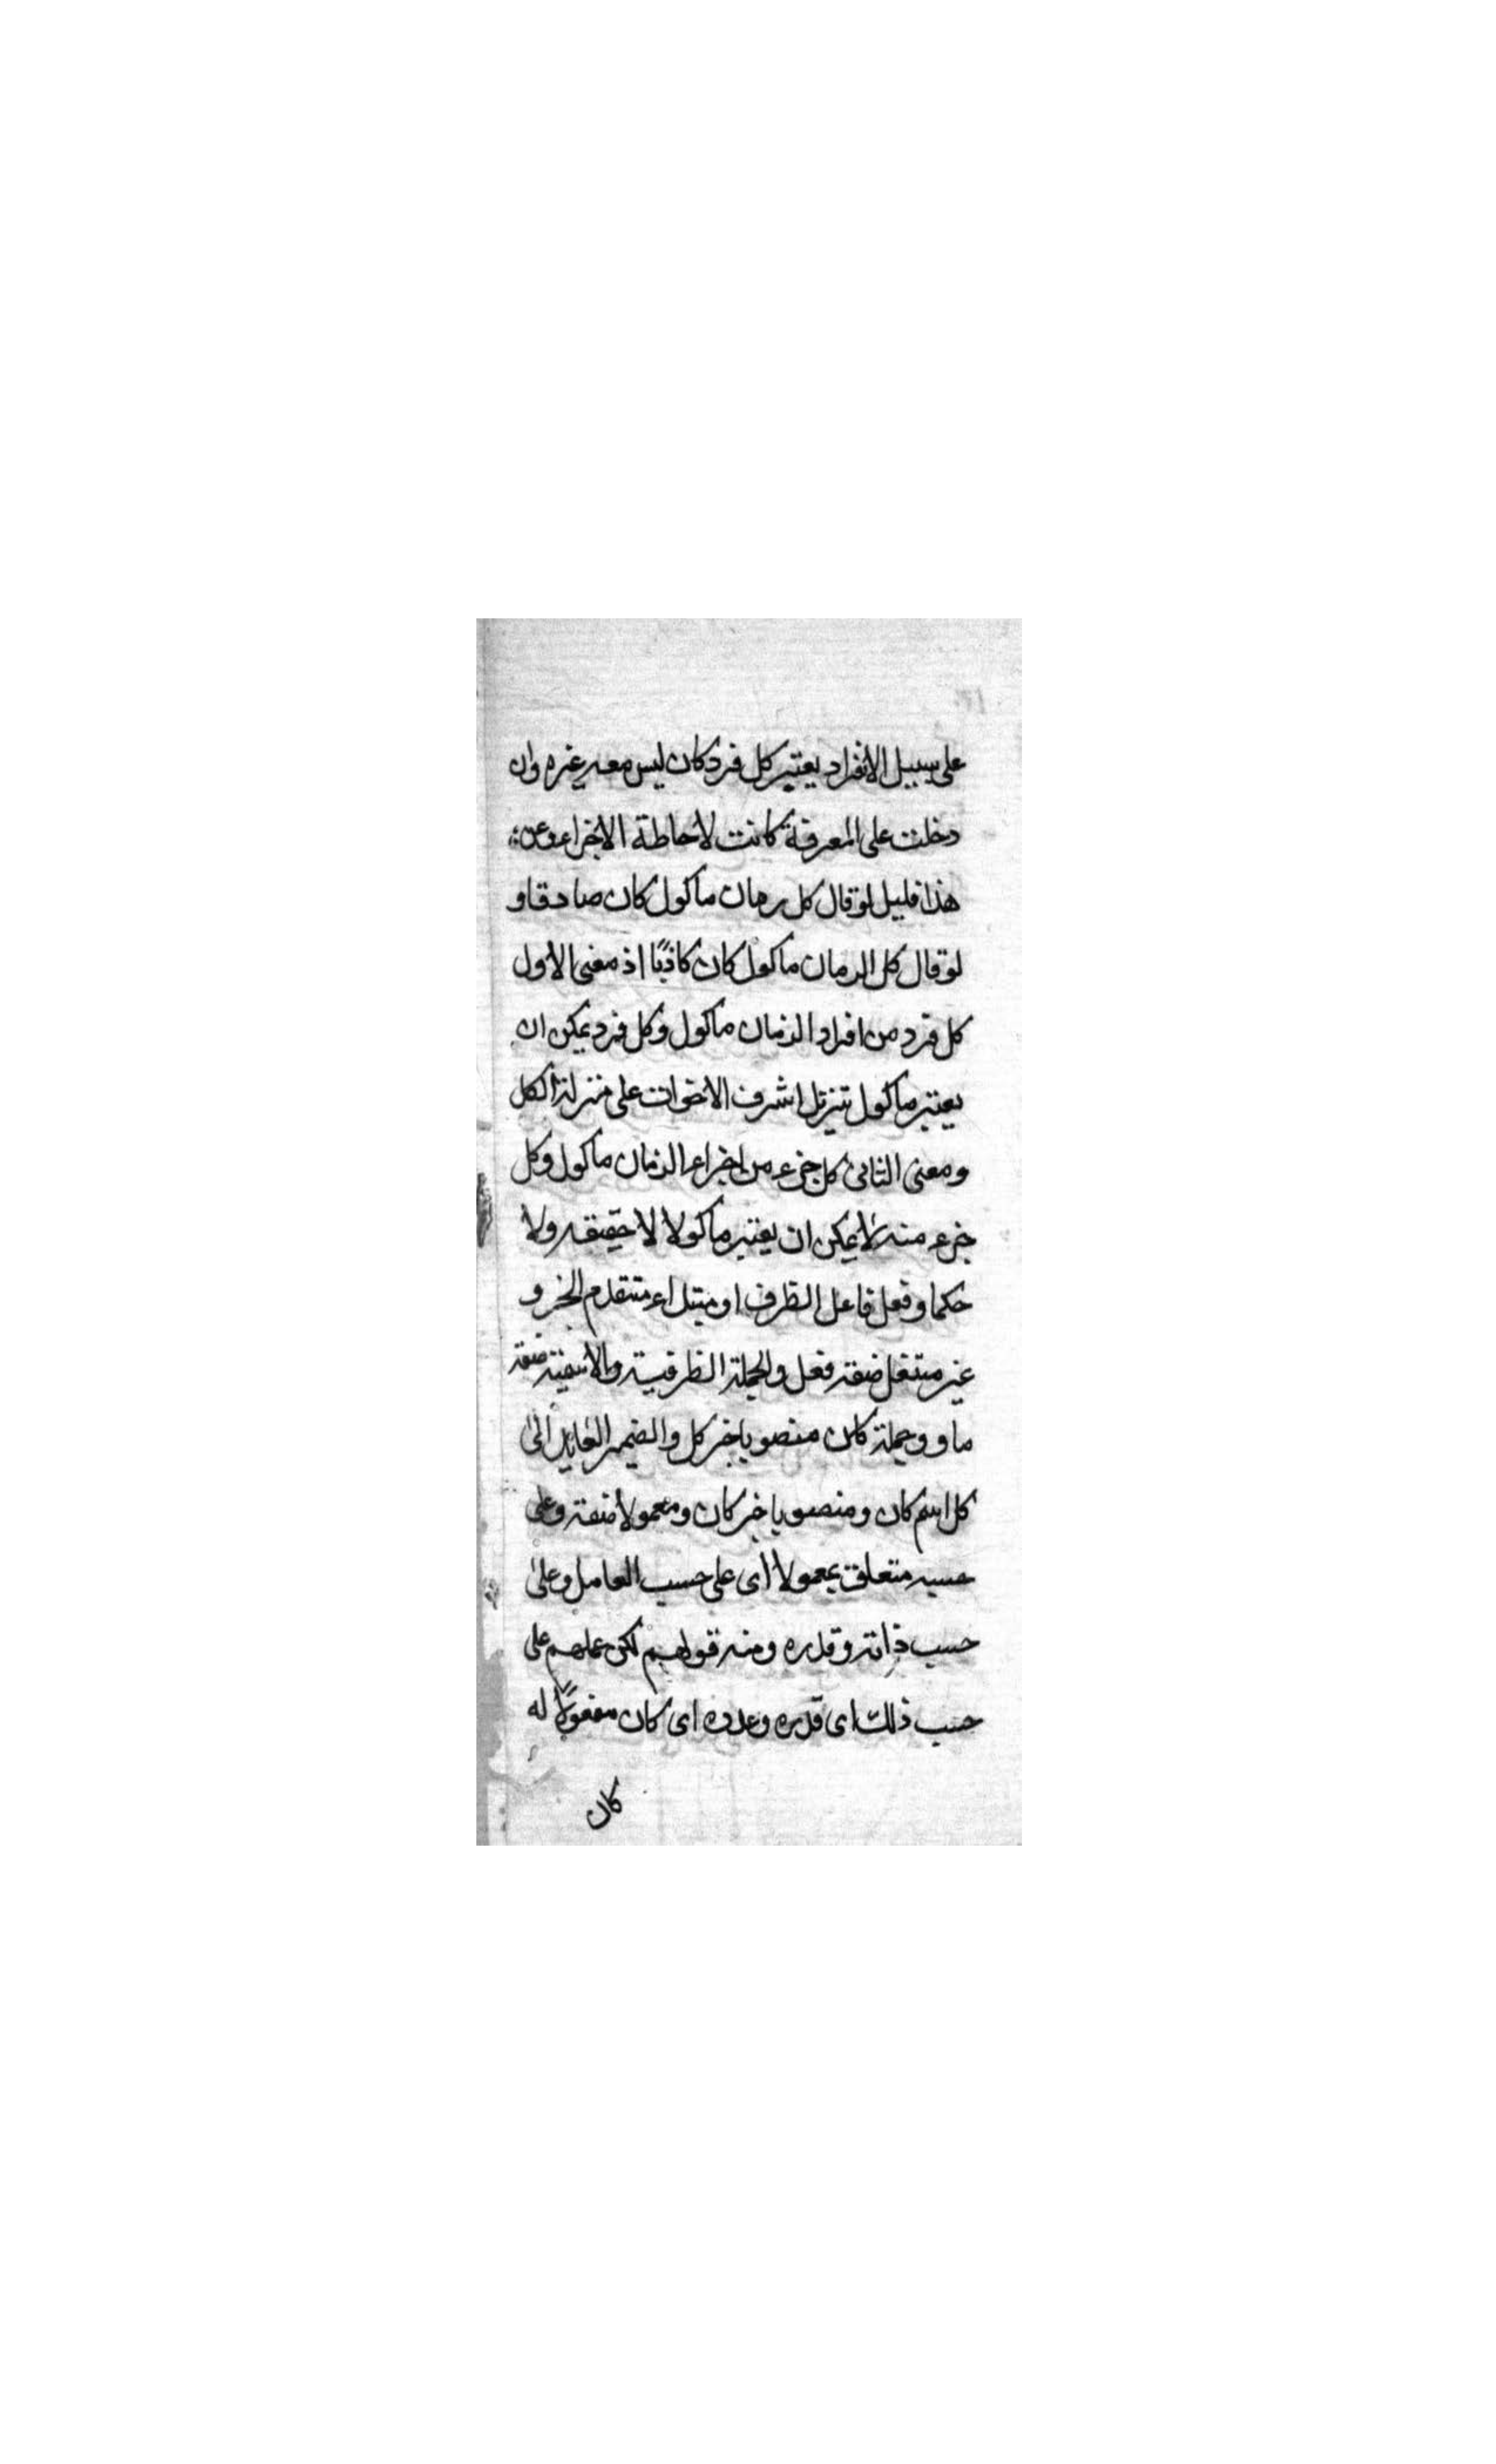 على سبيل الانفراد يعتبر كل فرد كان ليس معه غيره وان
دخلت على المعرفة كانت لاحاطة الاجزاء وعن
هذا قليل لو قال كل رمان ماكول كان صادقا و
لو قال كل الرمان ماكول كان كاذبًا اذ معنى الاول
كل فرد من افراد الرمان ماكول وكل فرد يمكن ان
يعتبر ماكول تنزيل اشرف الاخوات على منزلة الكل
ومعنى الثانى كل جزء من اجزاء الرمان ماكول وكل
جزء منه لا يمكن ان يعتبر ماكولا لا حقيقة ولا
حكما وفعل فاعل الظرف او مبتداء متقدم الخبر و
غير مشتغل صفة فعل والجملة الظرفية والاسمية صفة
ما و وجملة كان منصوبا خبر كل والضمير العايد الى
كل اسم كان ومنصوبا خبر كان ومعمولا صفة وعلى
حسبه متعلق بمعمولا اى على حسب العامل وعلى
حسب ذاته وقدره ومنه قولهم لكن عملهم على
حسب ذلك اى قدره وعدده اى كان مفعولًا له
كان